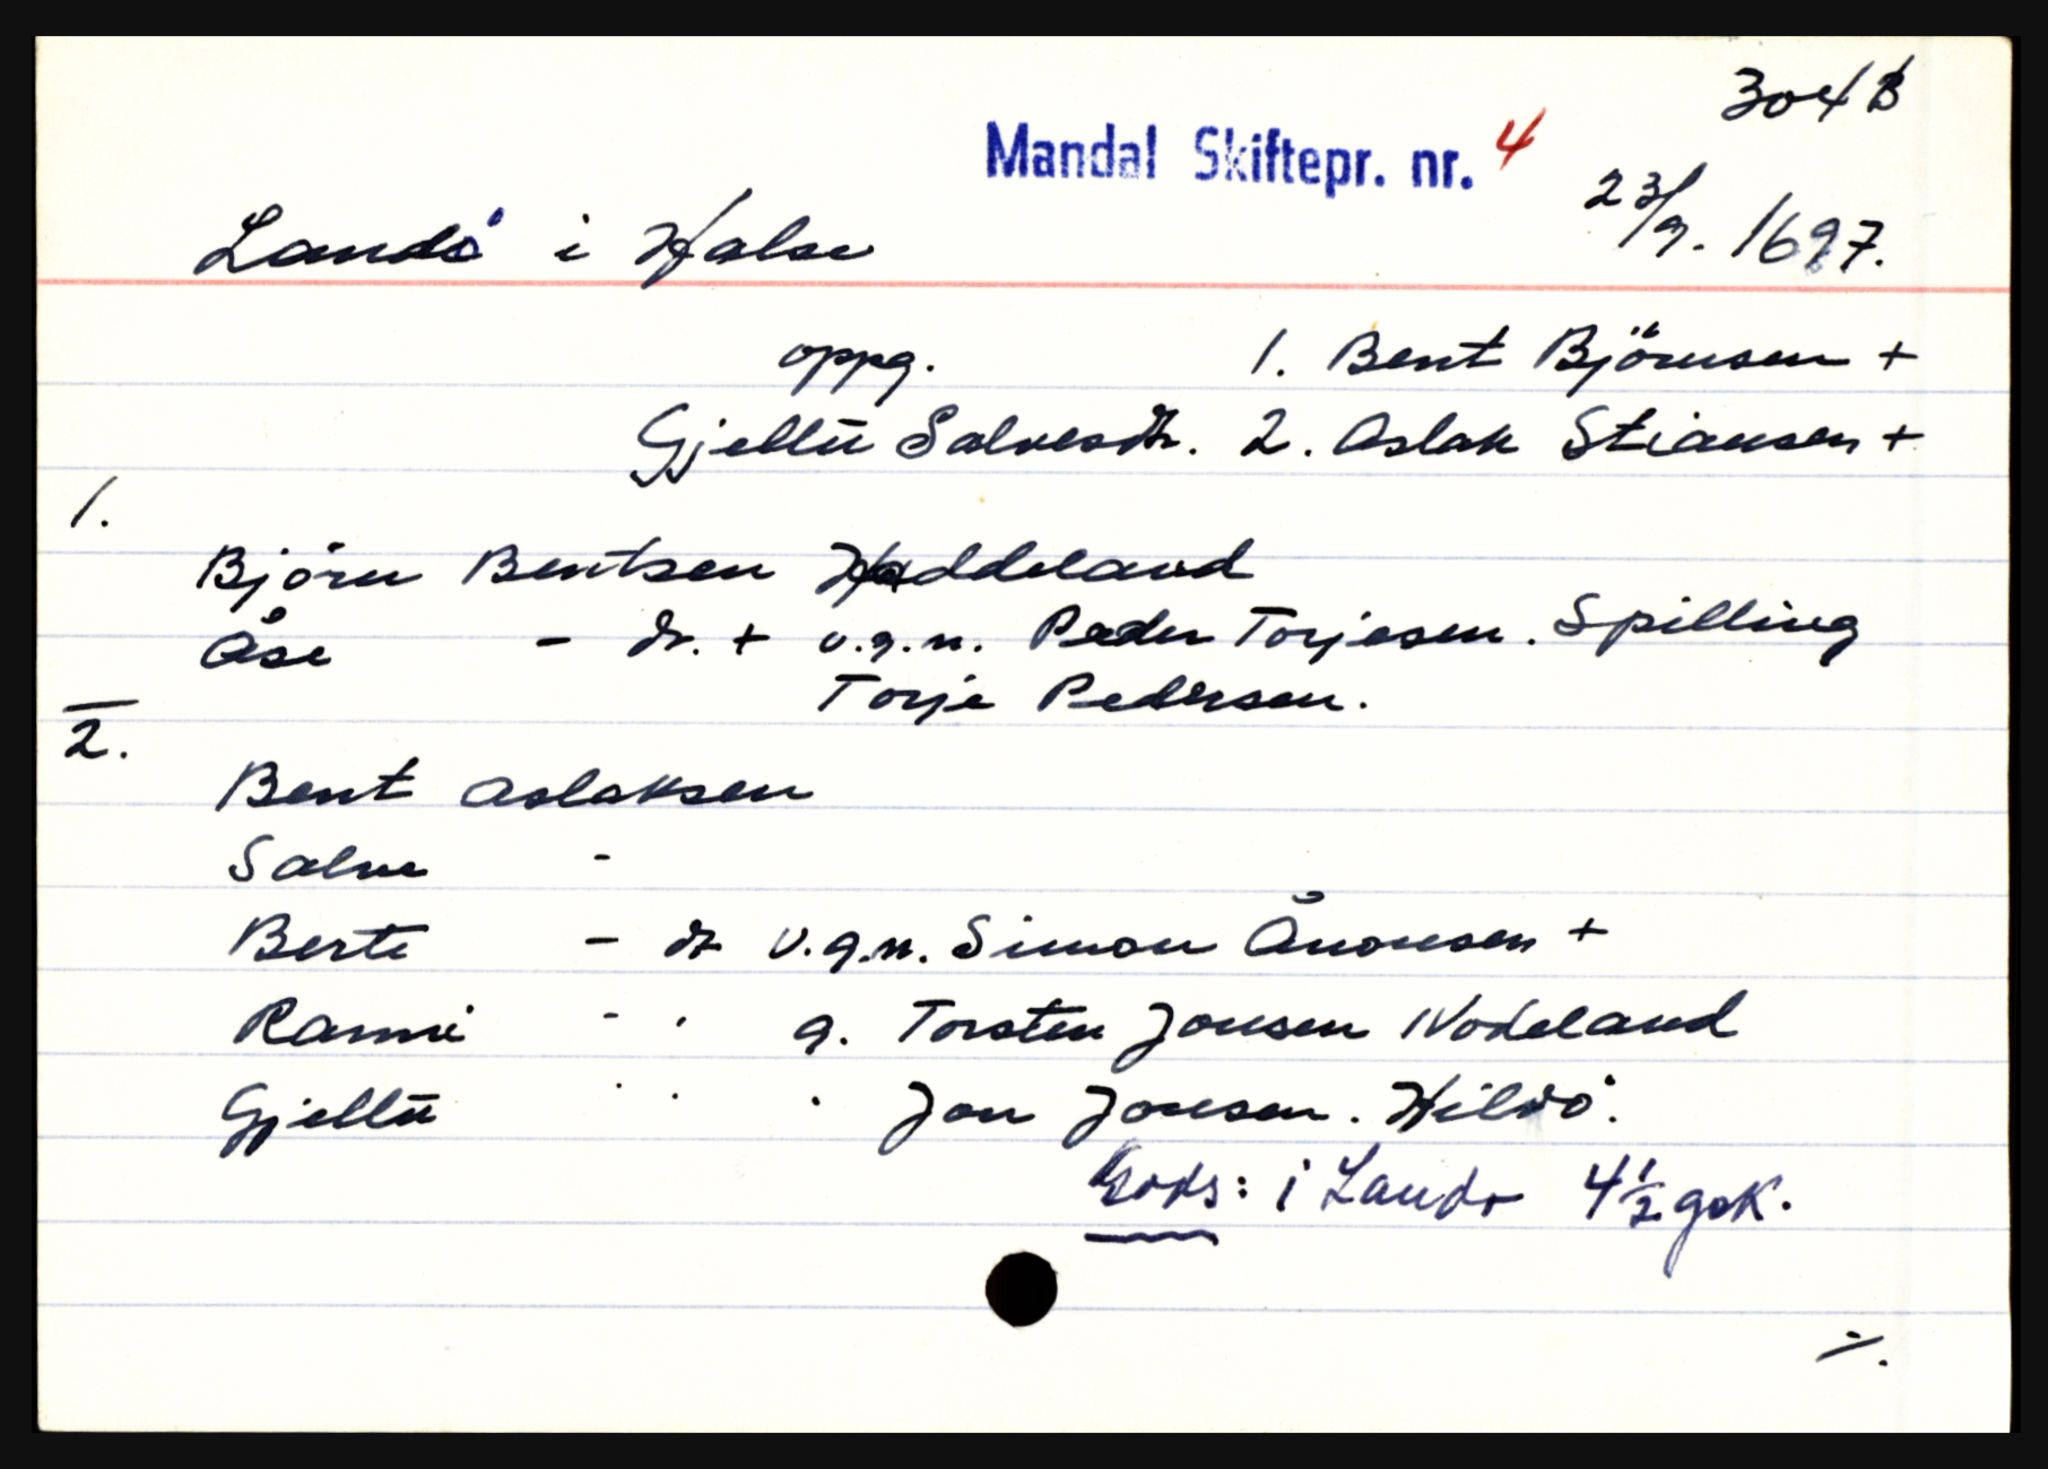 304 B
Mandal Skiftepr. nr. 4
23/9. 1697.
Landö i Halse
oppg. 1. Bent Björnsen +
Gjellu Salvesdtr. 2. Aslak Stiansen +
1.
Björn Bentsen Haddeland
Åse - dtr. + v.g.m. Peder Torjesen. Spilling
Torje Pedersen.
2.
Bent Aslaksen
Salve -
Berte - dtr v.g.m. Simon Ånonsen +
Ranni - ' g. Torsten Jonsen Nodeland
Gjellu ' ' ' Jon Jonsen. Hillö.
Gods: i Landö 4 1/2 gsk.